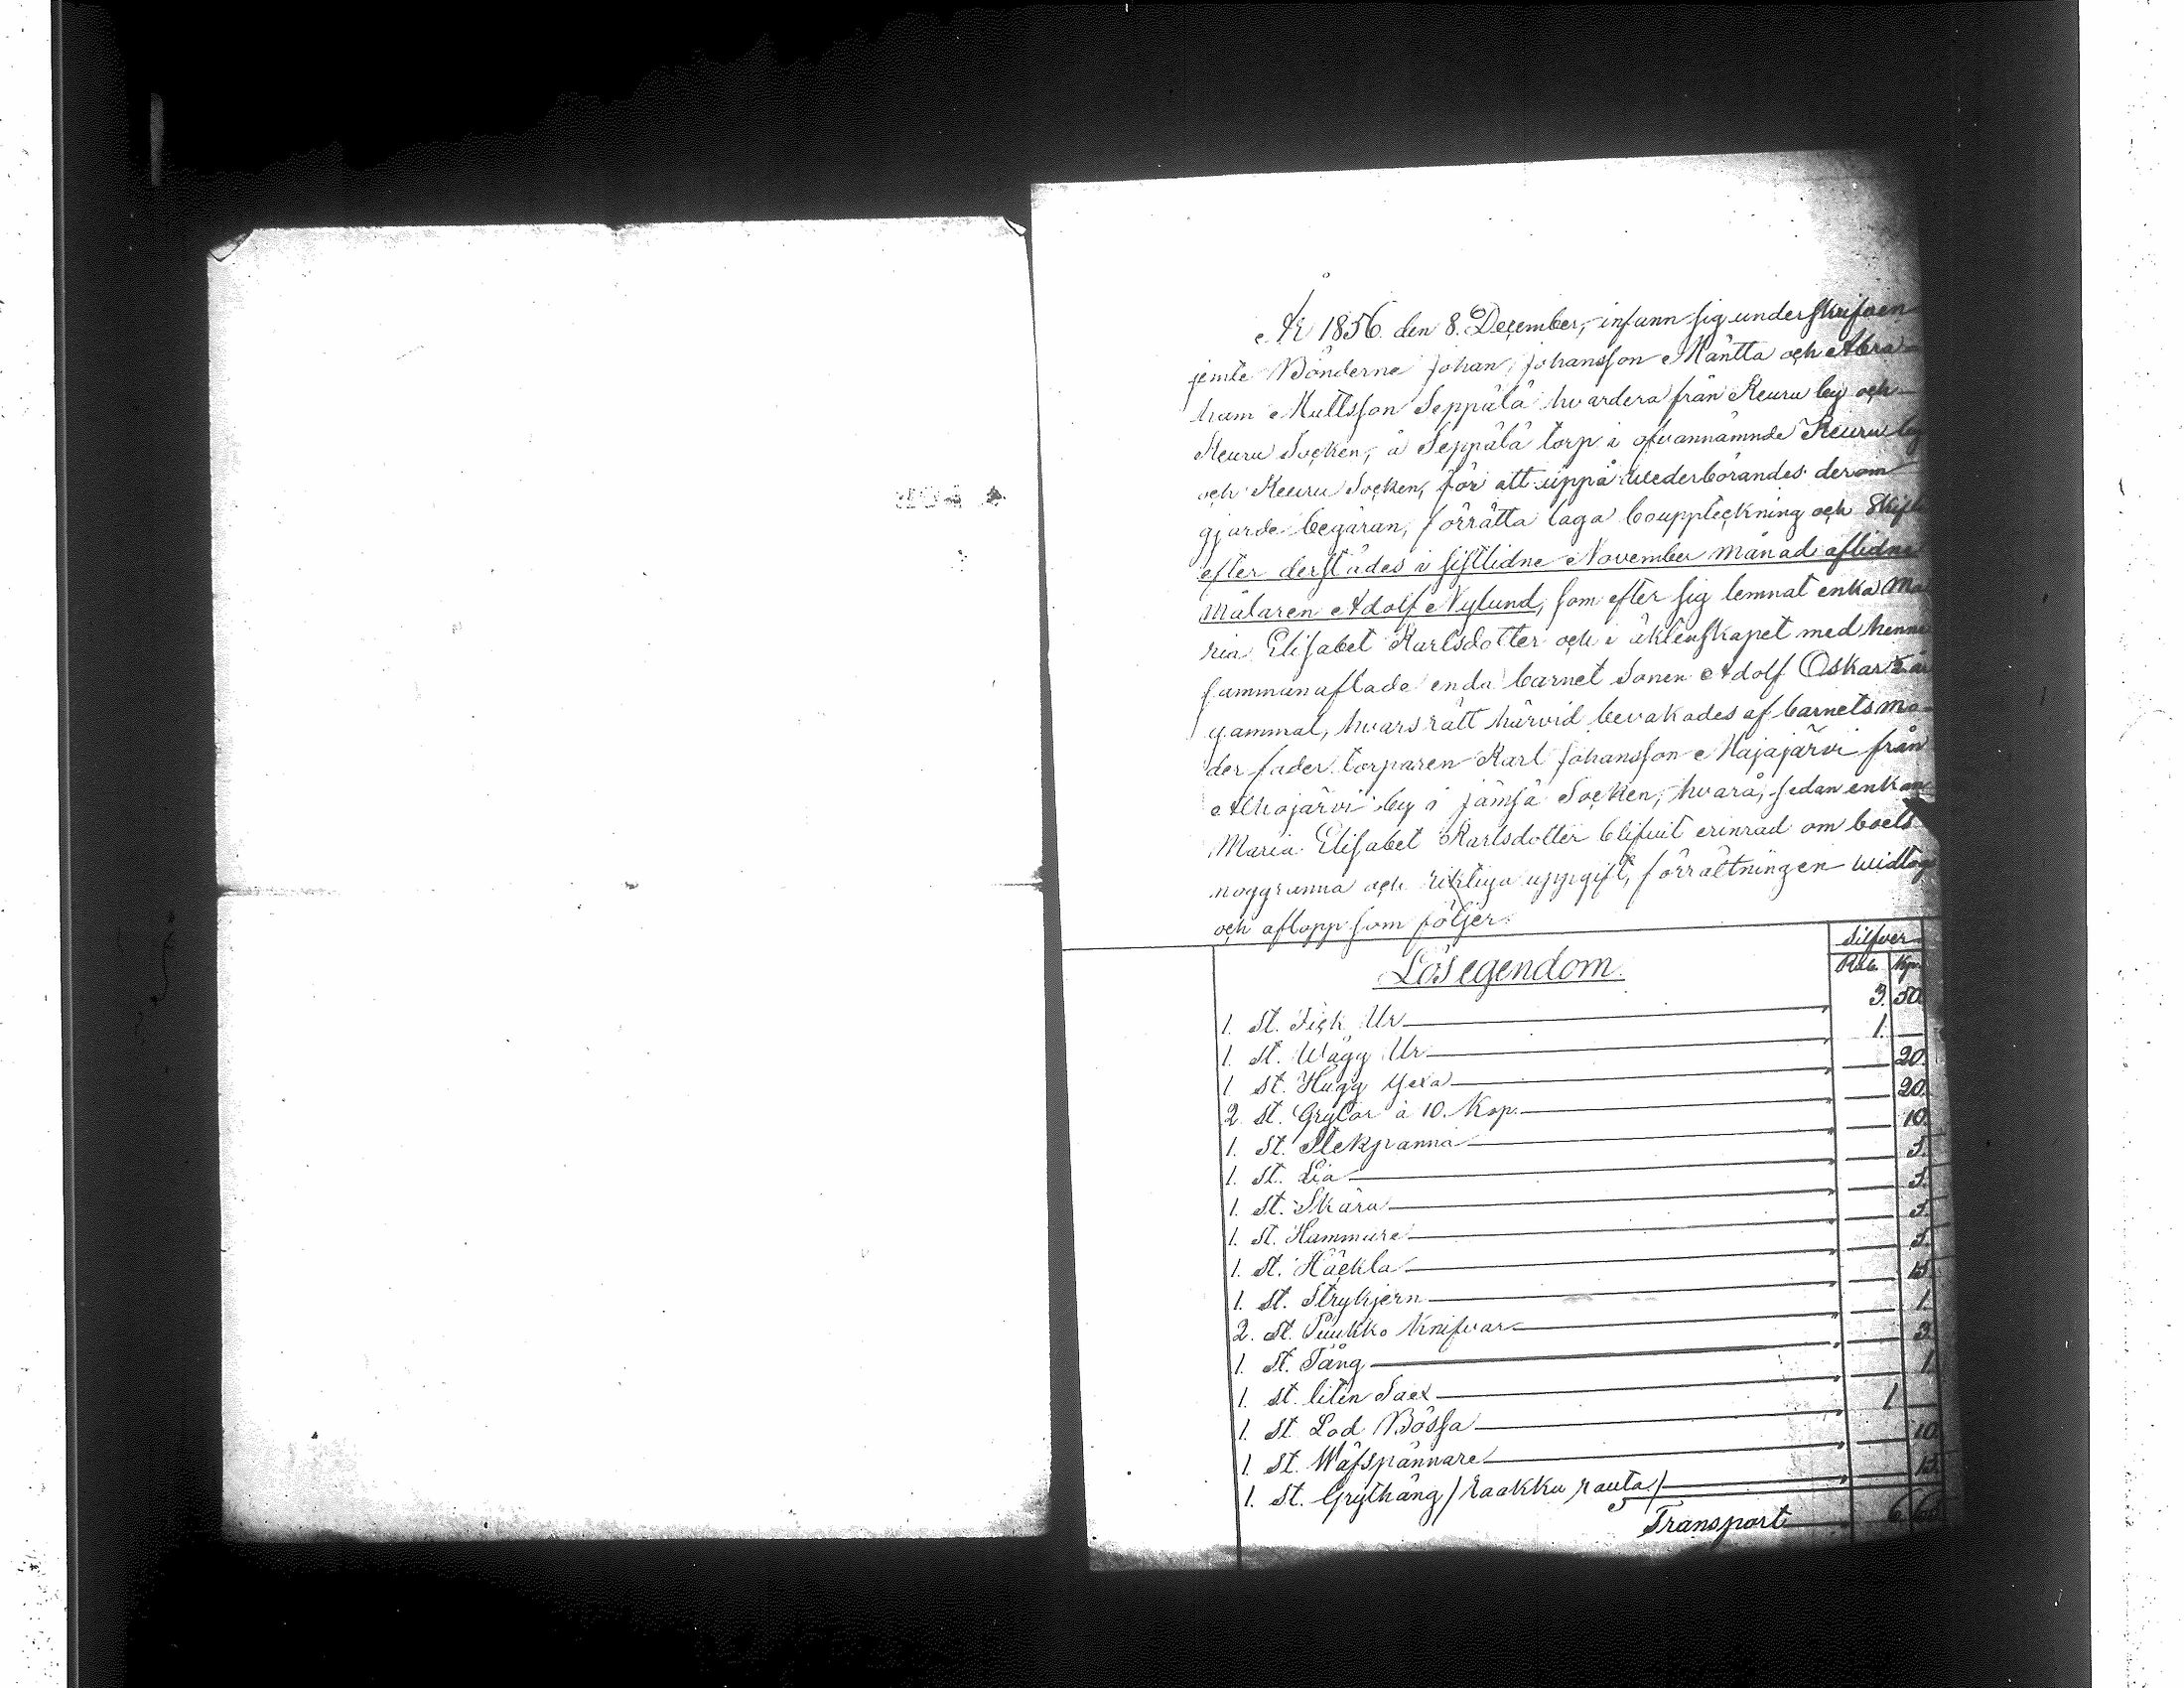 År 1856 den 8. December, infann sig underskrifven
jemte Bönderne Johan Johansson Mänttä och Abra-
ham Mattsson Seppälä hvardera från Keuru by och
Keuru Socken, å Seppälä torp i ofvannämnde Keuru by
och Keuru Socken, för att uppå wederbörandes derom
gjorde begäran, förrätta laga bouppteckning och Skifte
efter derstädes i sistlidne November månad aflidne
Målaren Adolf Nylund, som efter sig lemnat enka Ma
ria Elisabet Karlsdotter och i äktenskapet med henne
sammanaflade enda barnet Sonen Adolf Oskar år
gammal, hvars rätt härvid bevakades af barnets mo-
der fader torparen Karl Johansson Hajajärvi från
Alhojärvi by i Jämsä Socken, hvarå, sedan enkan
Maria Elisabet Karlsdotter blifvit erinrad om boets
noggranna och riktiga uppgift, förrättningen widtog
och aflopp som följer:
Silfver
Lösegendom. Rub. Kp.
1. St. Fick Ur 3. 50.
1. St. Wägg Ur 1. —
1. St. Hugg Yxa — 20.
2. St. Grytor à 10. Kop. — 20.
1. St. Stekpanna — 10.
1. St. Lia — 5.
1. St. Skära — 5.
1. St. Hammare — 5.
1. St. Häckla — 5.
1. St. Strykjern — 15
2. St. Puukko Knifvar — 1.
1. St. Tång — 3.
1. St. liten Sax — 1.
1. St. Lod Bössa 1 —
1. St. Wäfspännare — 10
1. St. Grythäng /raakku rauta/
Transport 6. 60